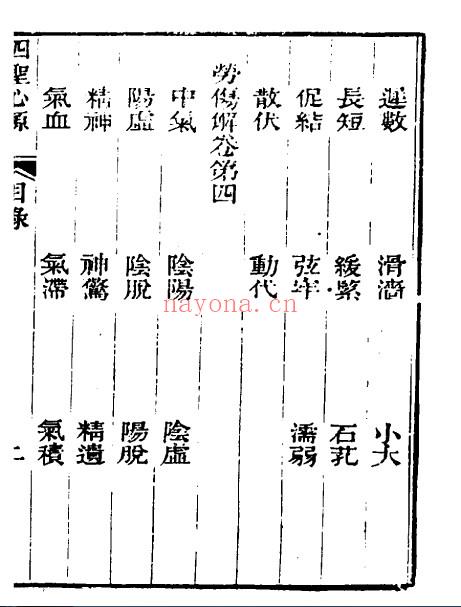 遲數 滑濇 小大
長短 緩緊 石芤
促結 弦牢 濡弱
散伏 動代
勞傷解卷第四
中氣 陰陽 陰虛
陽虛 陰脫 陽脫
精神 神驚 精遺
氣血 氣滯 氣積
四聖心源 目錄 二
nayona.cn